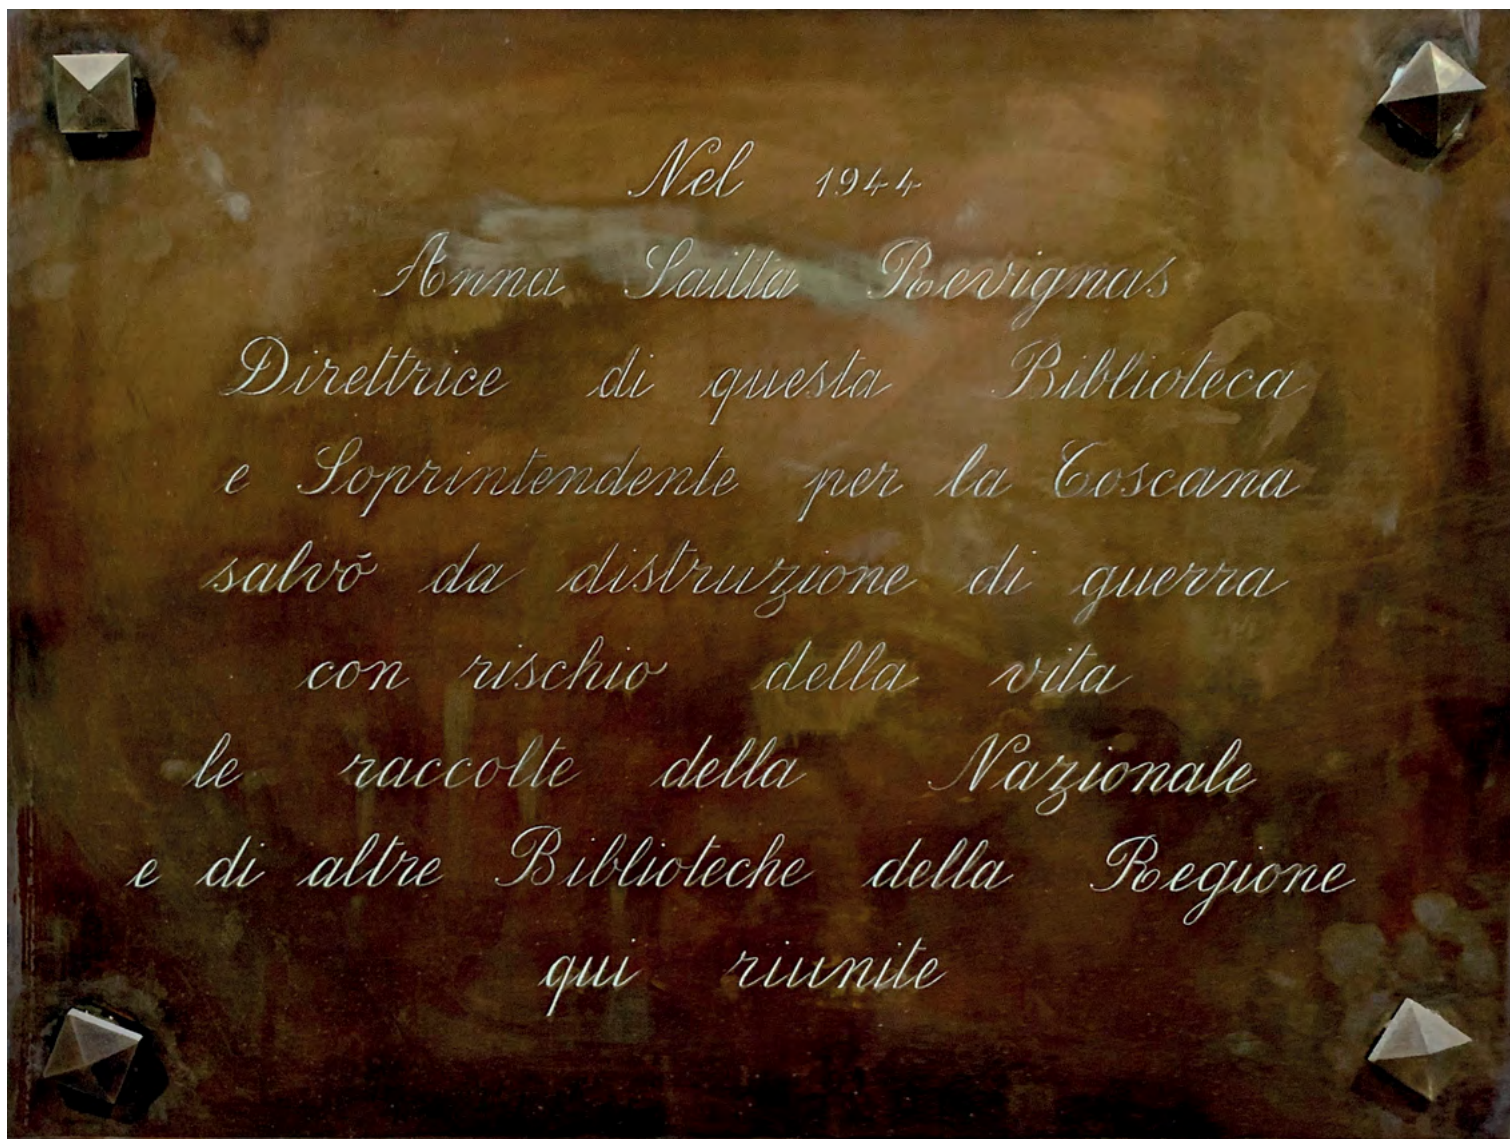 Nel 1944
Anna Saitta Revignas
Direttrice di questa Biblioteca
e Soprintendente per la Toscana
salvó da distruzione di guerra
con rischio della vita
le raccolte della Nazionale
e di altre Biblioteche della Regione
qui riunite